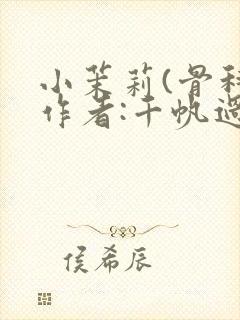 小茉莉(骨科
作者:千帆过
侯希辰